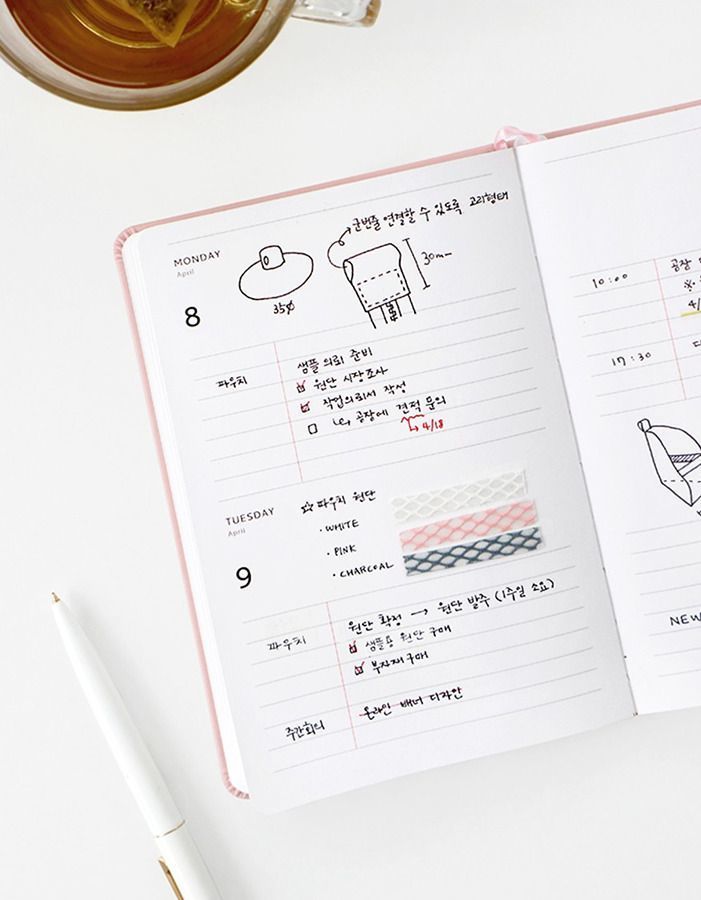 군번줄 연결할 수 있도록 고리형태
MONDAY
April
8
35Ø
30mm
샘플 의뢰 준비
파우치
원단 시장조사
작업의뢰서 작성
공장에 견적 문의
4/18
TUESDAY
April
9
☆ 파우치 원단
· WHITE
· PINK
· CHARCOAL
원단 확정 → 원단 발주 (1주일 소요)
파우치
샘플용 원단 구매
부자재 구매
주간회의
온라인 배너 디자인
10:00
공장
※
4/
17:30
NEW